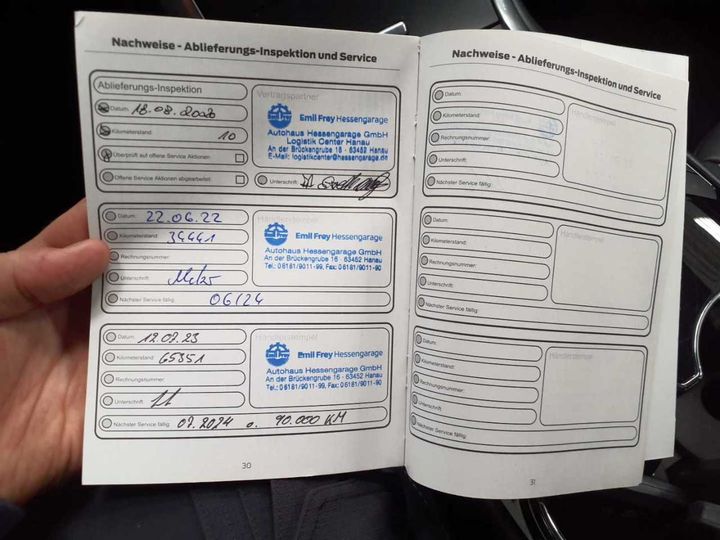 Nachweise - Ablieferungs-Inspektion und Service
Ablieferungs-Inspektion
Datum: 18.08.2020
Kilometerstand: 10
Überprüft auf offene Service Aktionen:
Offene Service Aktionen abgearbeitet:
Vertragspartner
Emil Frey Hessengarage
Autohaus Hessengarage GmbH
Logistik Center Hanau
An der Brückengrube 16 - 63452 Hanau
E-Mail: logistikcenter@hessengarage.de
Unterschrift:
Datum: 22.06.22
Kilometerstand: 39441
Rechnungsnummer:
Unterschrift:
Nächster Service fällig: 06/24
Händlerstempel
Emil Frey Hessengarage
Autohaus Hessengarage GmbH
An der Brückengrube 16 - 63452 Hanau
Tel.: 06181/9011-99, Fax: 06181/9011-90
Datum: 12.07.23
Kilometerstand: 65351
Rechnungsnummer:
Unterschrift:
Nächster Service fällig: 07.2024 o. 90.000 KM
Händlerstempel
Emil Frey Hessengarage
Autohaus Hessengarage GmbH
An der Brückengrube 16 - 63452 Hanau
Tel.: 06181/9011-99, Fax: 06181/9011-90
30
Nachweise - Ablieferungs-Inspektion und Service
Datum:
Kilometerstand:
Rechnungsnummer:
Unterschrift:
Nächster Service fällig:
Datum:
Kilometerstand:
Rechnungsnummer:
Unterschrift:
Nächster Service fällig:
Händlerstempel
Datum:
Kilometerstand:
Rechnungsnummer:
Unterschrift:
Nächster Service fällig:
Händlerstempel
31